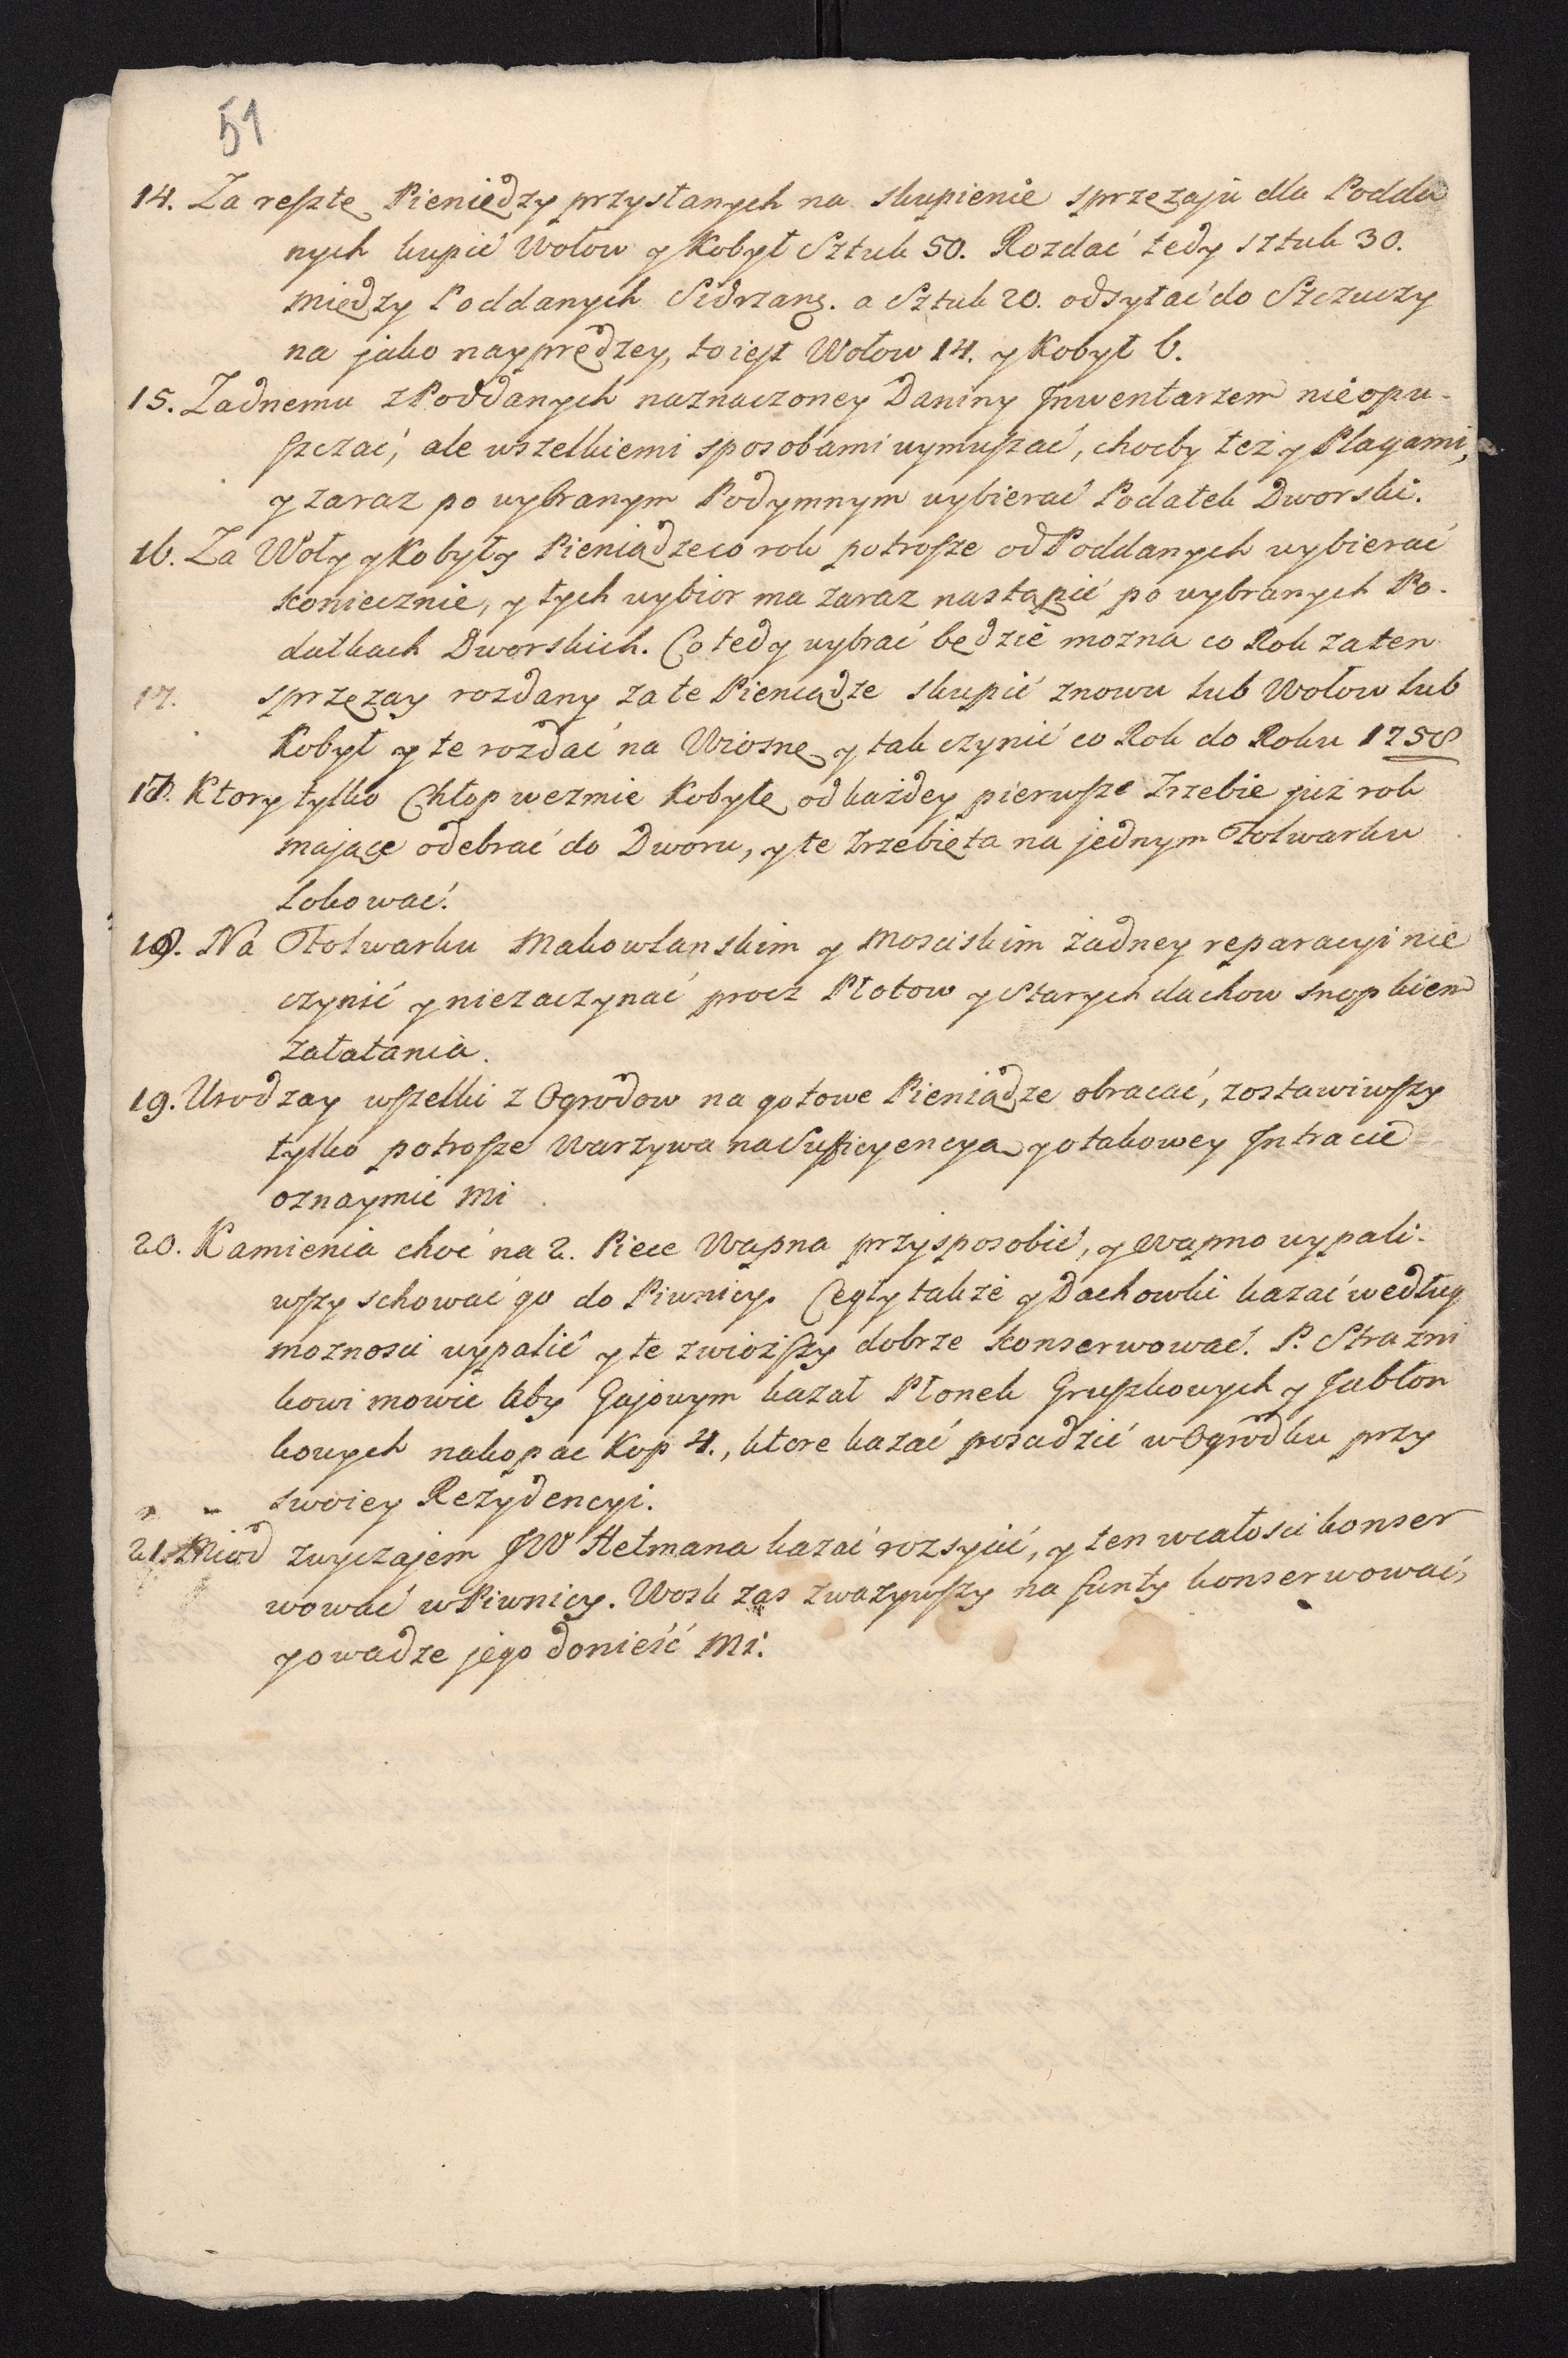 51
14. Za resztę Pieniędzy przysłanych na skupienie sprzężaju dla Podda
nych kupić Wołow y Kobył Sztuk 50. Rozdać tedy sztuk 30.
między Poddanych Sidrzans. a Sztuk 20. odsyłać do Szczuczy
na jako nayprędzey, to iest Wołow 14. y Kobył 6.
15. Żadnemu z Poddanych naznaczoney Daniny Jnwentarzem nieopu-
szczać, ale wszelkiemi sposobami wymuszać, choćby też y Plagami,
y zaraz po wybranym Podymnym wybierać Podatek Dworski.
16. Za Woły y Kobyły Pieniądze co rok potrosze od Poddanych wybierać
koniecznie, y tych wybior ma zaraz nastąpić po wybranych Po-
datkach Dworskich. Co tedy wybrać będzie mozna co Rok za ten
17. sprzęzay rozdany za te Pieniądze skupić znowu lub Wołow lub
Kobył y te rozdać na Wiosnę y tak czynić co Rok do Roku 1758
17. Ktory tylko Chłop wezmie Kobyłę od każdey pierwsze Zrzebie już rok
mające odebrać do Dworu, y te Zrzebięta na jednym Folwarku
lokować.
18. Na Folwarku Makowlanskim y Mosciskim żadney reparacyi nie
czynić y niezaczynać procz Płotow y starych dachow snopkiem
załatania.
19. Urodzay wszelki z Ogrodow na gotowe Pieniądze obracać, zostawiwszy
tylko potrosze Warzywa na Sufficyencyą y o takowey Jntracie
oznaymić mi
20. Kamienia choć na 2. Piece Wapna przysposobić, y Wapno wypali-
wszy schować go do Piwnicy. Cegły także y Dachowki kazać według
moznosci wypalić y te zwiozszy dobrze konserwować. P. Strazni
kowi mowić aby Gajowym kazał Płonek Gruszkowych y Jabłon
kowych nakopac Kop 4., ktore kazać posadzić w Ogrodku przy
swoiey Rezydencyi.
21. Miod zwyczajem JW Hetmana kazać rozsycić, y ten wcałości konser
wować w Piwnicy. Wosk zas zwazywszy na funty konserwować,
y o wadze jego donieść mi.